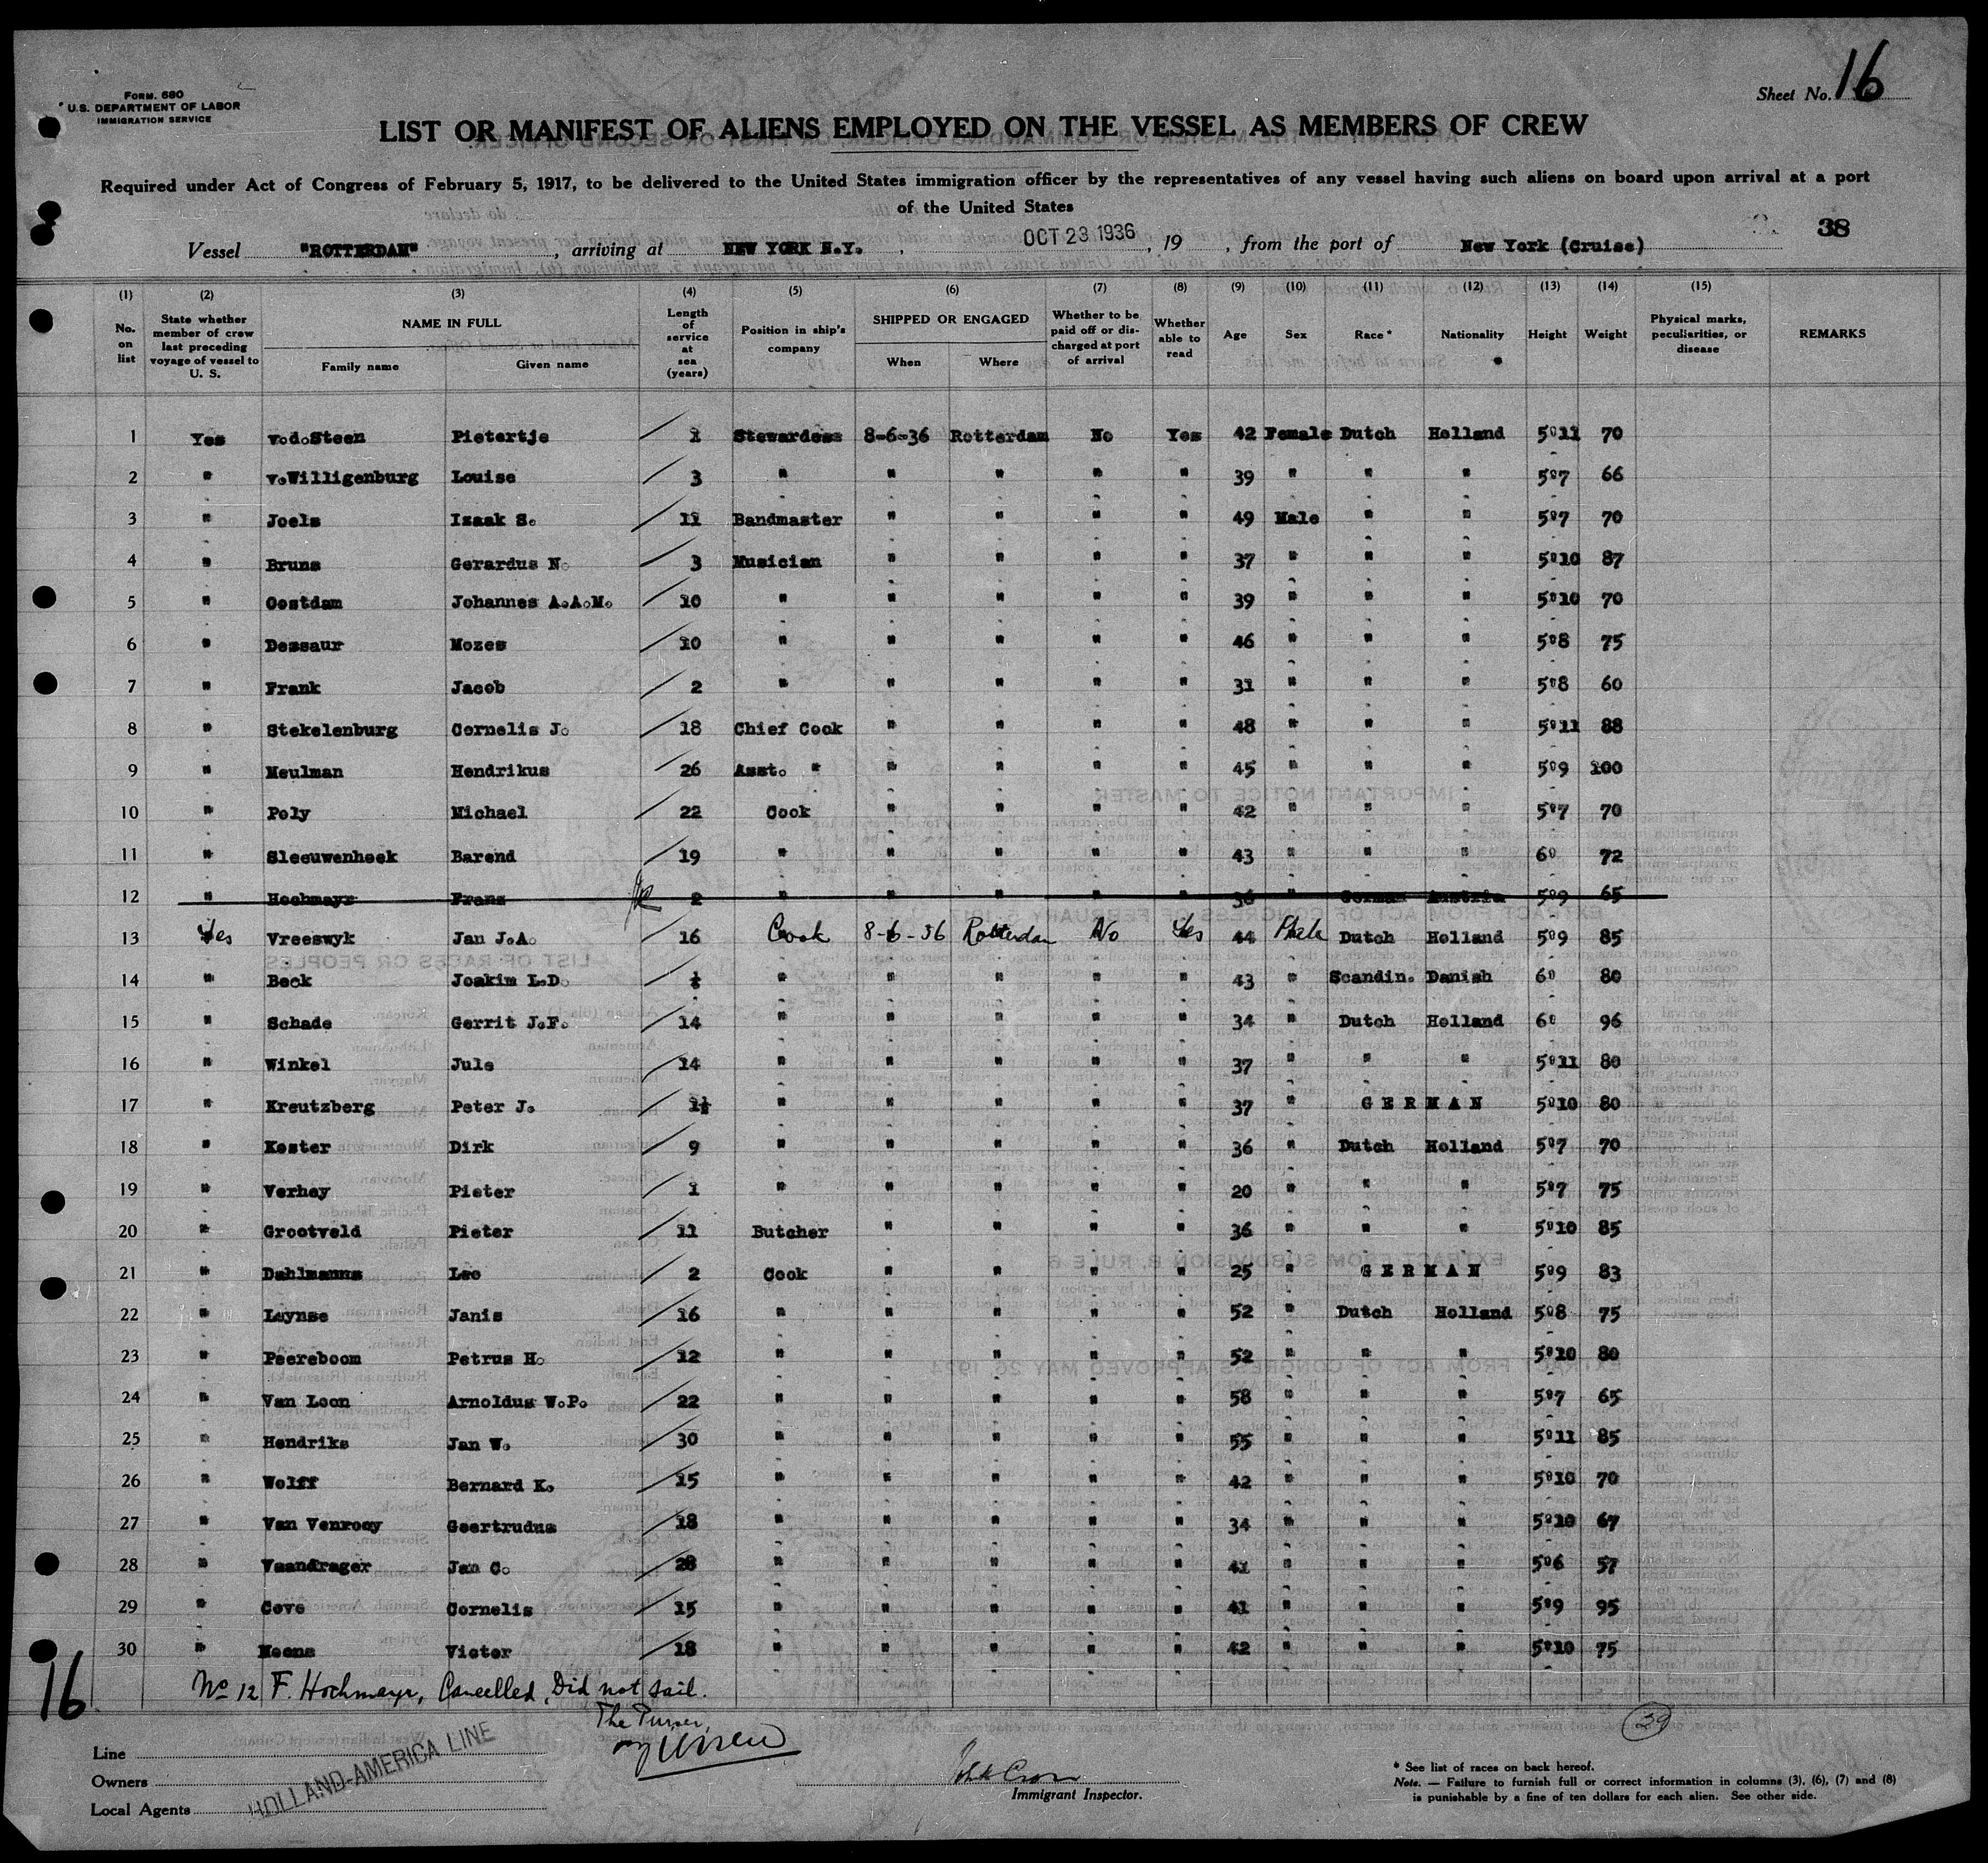 Form. 680
U.S. DEPARTMENT OF LABOR
IMMIGRATION SERVICE
Sheet No. 16
LIST OR MANIFEST OF ALIENS EMPLOYED ON THE VESSEL AS MEMBERS OF CREW
Required under Act of Congress of February 5, 1917, to be delivered to the United States immigration officer by the representatives of any vessel having such aliens on board upon arrival at a port
of the United States
38
Vessel "ROTTERDAM", arriving at NEW YORK N.Y., OCT 23 1936, 19 , from the port of New York (Cruise)
(1) (2) (3) (4) (5) (6) (7) (8) (9) (10) (11) (12) (13) (14) (15)
No. on list
State whether member of crew last preceding voyage of vessel to U. S.
NAME IN FULL
Family name Given name
Length of service at sea (years)
Position in ship's company
SHIPPED OR ENGAGED
When Where
Whether to be paid off or discharged at port of arrival
Whether able to read
Age Sex Race* Nationality Height Weight
Physical marks, peculiarities, or disease
REMARKS
1 Yes v.d.Steen Pietertje 1 Stewardess 8-6-36 Rotterdam No Yes 42 Female Dutch Holland 5º11 70
2 " v.Willigenburg Louise 3 " " " " " 39 " " " 5º7 66
3 " Joels Izaak S. 11 Bandmaster " " " " 49 Male " " 5º7 70
4 " Bruns Gerardus N. 3 Musician " " " " 37 " " " 5º10 87
5 " Oostdam Johannes A.A.M. 10 " " " " " 39 " " " 5º10 70
6 " Dessaur Mozes 10 " " " " " 46 " " " 5º8 75
7 " Frank Jacob 2 " " " " " 31 " " " 5º8 60
8 " Stekelenburg Cornelis J. 18 Chief Cook " " " " 48 " " " 5º11 88
9 " Meulman Hendrikus 26 Asst. " " " " " 45 " " " 5º9 100
10 " Poly Michael 22 Cook " " " " 42 " " " 5º7 70
11 " Sleeuwenhoek Barend 19 " " " " " 43 " " " 6º 72
12 " Hochmayr Franz 2 " " " " " 36 " German Austria 5º9 65
13 Yes Vreeswyk Jan J.A. 16 Cook 8-6-36 Rotterdam No Yes 44 Male Dutch Holland 5º9 85
14 " Beck Joakim L.D. " " " " " 43 " Scandin. Danish 6º 80
15 " Schade Gerrit J.F. 14 " " " " " 34 " Dutch Holland 6º 96
16 " Winkel Jule 14 " " " " " 37 " " " 5º11 80
17 " Kreutzberg Peter J. 1½ " " " " " 37 " GERMAN 5º10 80
18 " Koster Dirk 9 " " " " " 36 " Dutch Holland 5º7 70
19 " Verhey Pieter 1 " " " " " 20 " " " 5º7 75
20 " Grootveld Pieter 11 Butcher " " " " 36 " " " 5º10 85
21 " Dahlmanns Leo 2 Cook " " " " 25 " GERMAN 5º9 83
22 " Luynse Janis 16 " " " " " 52 " Dutch Holland 5º8 75
23 " Peereboom Petrus H. 12 " " " " " 52 " " " 5º10 80
24 " Van Loon Arnoldus W.P. 22 " " " " " 58 " " " 5º7 65
25 " Hendriks Jan W. 30 " " " " " 55 " " " 5º11 85
26 " Wolff Bernard K. 15 " " " " " 42 " " " 5º10 70
27 " Van Venrooy Geertrudus 18 " " " " " 34 " " " 5º10 67
28 " Vaandrager Jan C. 28 " " " " " 41 " " " 5º6 57
29 " Cove Cornelis 15 " " " " " 41 " " " 5º9 95
30 " Meens Victor 18 " " " " " 42 " " " 5º10 75
16
No 12 F. Hochmayr, Cancelled, Did not sail.
The Purser,
39
Line
Owners
Local Agents
HOLLAND-AMERICA LINE
Immigrant Inspector.
* See list of races on back hereof.
Note. — Failure to furnish full or correct information in columns (3), (6), (7) and (8)
is punishable by a fine of ten dollars for each alien. See other side.